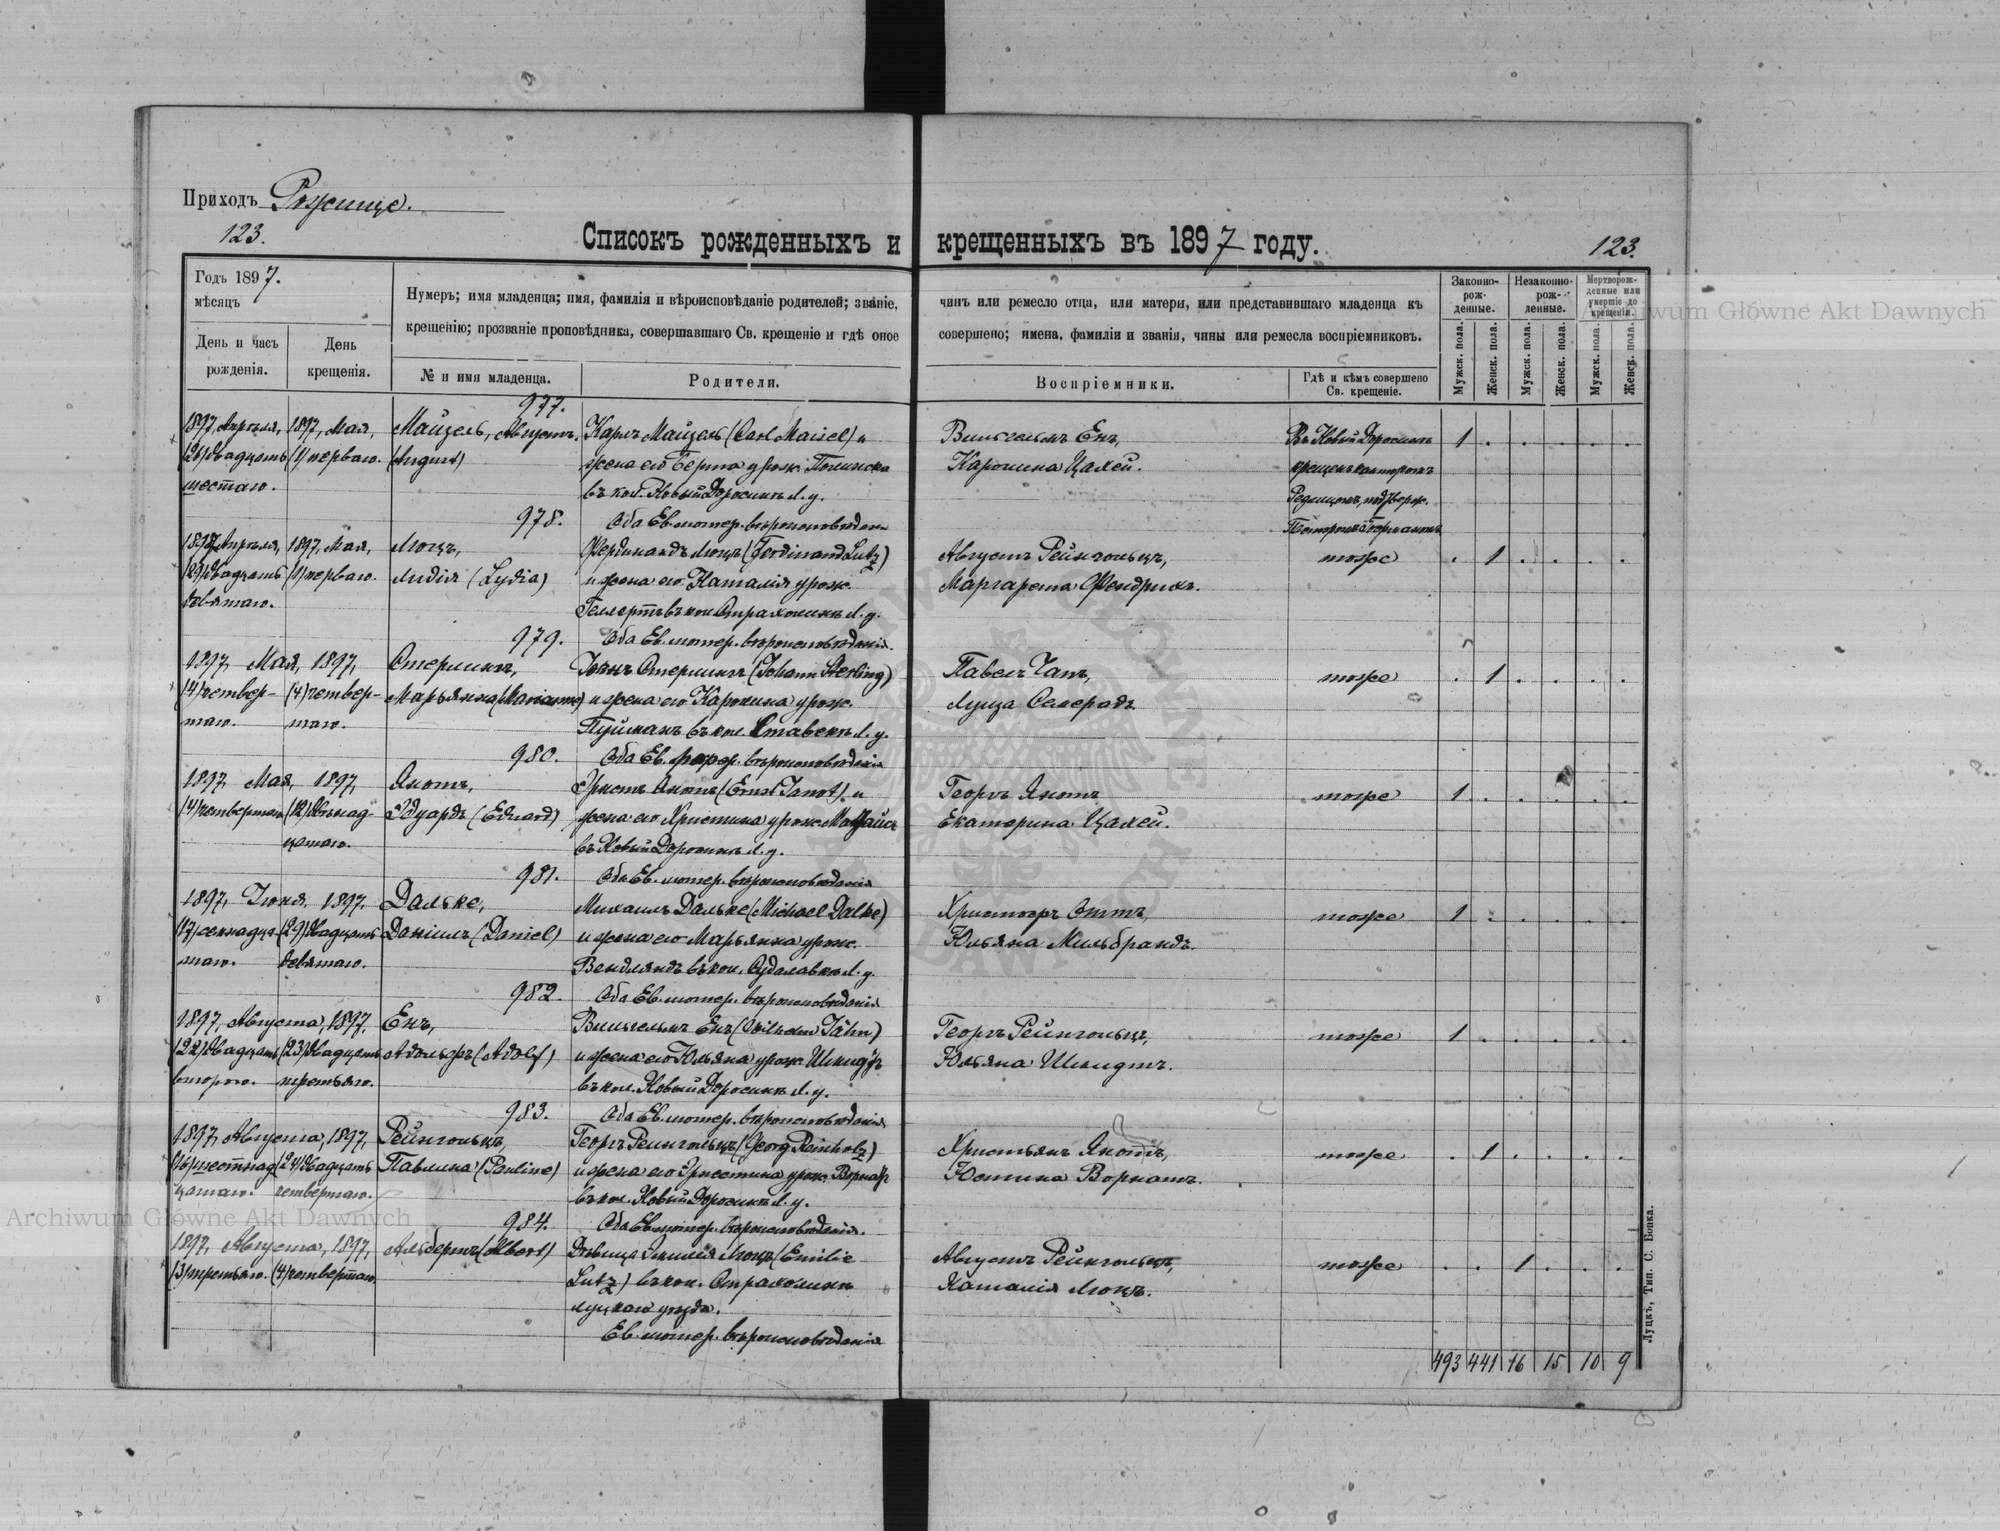 Приходъ Рожище.
123.
Списокъ рожденныхъ и крещенныхъ въ 1897 году.
123.
Годъ 1897.
мѣсяцъ
День и часъ рожденія.
День крещенія.
Нумеръ; имя младенца; имя, фамилія и вѣроисповѣданіе родителей; званіе, чинъ или ремесло отца, или матери, или представившаго младенца къ
крещенію; прозваніе проповѣдника, совершавшаго Св. крещеніе и гдѣ оное совершено; имена, фамиліи и званія, чины или ремесла воспріемниковъ.
№ и имя младенца.
Родители.
Воспріемники.
Гдѣ и кѣмъ совершено Св. крещеніе.
Законно-рож-денные.
Незаконно-рож-ленные.
Мертворож-денные или умершіе до крещенія.
Мужск. пола.
Женск. пола.
Мужск. пола.
Женск. пола.
Мужск. пола.
Женск. пола.
977.
1897, Апрѣля, 1897, Мая, Майзель, Августъ Карлъ Майзель (Carl Maisel) и Вильгельмъ Енъ, Въ Новый Доросинъ 1 . . . . .
(26) двадцать (1) перваго. (August) жена его Берта урож. Каролина Цалей. крещенъ канторомъ
шестаго. въ кол. Новый Доросинъ Л. у.
978. Оба Ев. лютер. вѣроисповѣданія
1897, Апрѣля, 1897, Мая, Лютцъ, Фердинандъ Лютцъ (Ferdinand Lutz) Августъ Рейнгольцъ, тоже . 1 . . . .
(29) двадцать (1) перваго. Лидія (Lydia) и жена его Наталія урож. Маргарета Фендрихъ.
девятаго. Геллертъ въ кол. Страхолинъ Л. у.
979. Оба Ев. лютер. вѣроисповѣданія.
1897, Мая, 1897, Стерлинкъ, Іоганъ Стерлингъ (Johann Sterling) Павелъ Чапъ, тоже . 1 . . . .
(4) четвер- (4) четвер- Марьянна (Marianne) и жена его Каролина урож. Луиза Селерадъ
таго. таго. Пуйманъ въ кол. Ставекъ Л. у.
980. Оба Ев. реф. вѣроисповѣданія
1897, Мая, 1897, Янотъ, Эрнстъ Янотъ (Ernst Janot) и Георгъ Янотъ тоже 1 . . . . .
(4) четвертаго (12) двѣнад- Эдуардъ (Eduard) жена его Христина урож. Матайсъ Екатерина Цалей.
цатаго. въ Новый Доросинъ Л. у.
981. Оба Ев. лютер. вѣроисповѣданія
1897, Іюня, 1897. Дальке, Михаилъ Дальке (Michael Dalke) Христофъ Оттъ, тоже 1 . . . . .
(17) семнадца- (29) двадцать Даніилъ (Daniel) и жена его Марьянна урож. Юльяна Мильбрандъ.
таго. девятаго. Вендляндъ въ кол. Л. у.
982. Оба Ев. лютер. вѣроисповѣданія
1897, Августа, 1897, Енъ, Вильгельмъ Енъ (Wilhelm Jähn) Георгъ Рейнгольцъ, тоже 1 . . . . .
(22) двадцать (23) двадцать Адольфъ (Adolf) и жена его Юльяна урож. Шмидтъ Юльяна Шмидтъ.
второго. третьяго. въ кол. Новый Доросинъ Л. у.
983. Оба Ев. лютер. вѣроисповѣданія
1897, Августа, 1897, Рейнгольцъ, Георгъ Рейнгольцъ (Georg Reinholz) Христьянъ Янотъ, тоже . 1 . . . .
(16) шестнад- (24) двадцать Павлина (Pauline) и жена его Христина урож. Ворнатъ Юстина Ворнатъ.
цатаго. четвертаго. въ кол. Новый Доросинъ Л. у.
984. Оба Ев. лютер. вѣроисповѣданія.
1897, Августа, 1897, Альбертъ (Albert) Дѣвица Эмилія Лютцъ (Emilie Августъ Рейнгольцъ, тоже . . 1 . . .
(3) третьяго. (4) четвертаго. Lutz) въ кол. Страхолинъ Наталія Лютцъ.
луцкаго уѣзда.
Ев. лютер. вѣроисповѣданія
493 441 16 15 10 9
Луцкъ, Тип. С. Бонка.
Archiwum Główne Akt Dawnych
Archiwum Główne Akt Dawnych